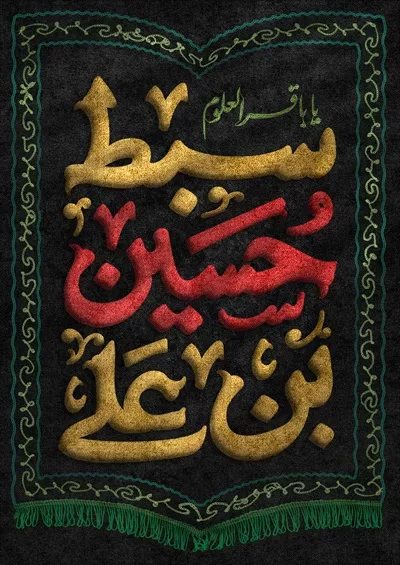 یا باقر العلوم
سبط
حسین
بن علی